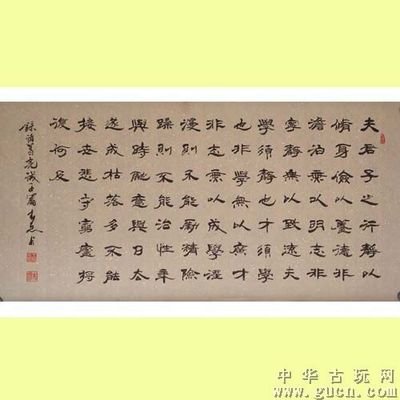 夫君子之行靜以
脩身儉以養德非
澹泊無以明志非
寧靜無以致遠夫
學須靜也才須學
也非學無以廣才
非志無以成學淫
漫則不能勵精險
躁則不能治性年
與時馳意與日去
遂成枯落多不能
接世悲守窮廬將
復何及
錄諸葛亮誡子
中华古玩网
www.gucn.com